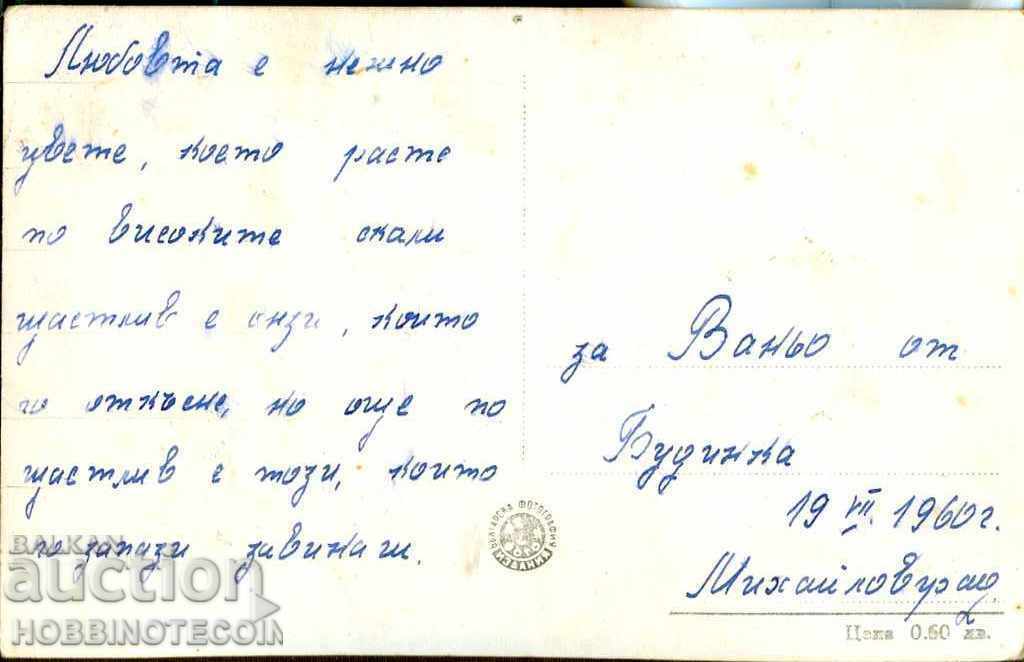 Любовта е нежно
цвете, което расте
по високите скали
щастлив е онзи, които
го откъсне, но още по
щастлив е този, които
го запази завинаги.
за Ваньо от
Будинка
19 VII. 1960 г.
Михайловград
Цена 0.60 лв.
БЪЛГАРСКА ФОТОГРАФИЯ
ИЗДАНИЯ
BALKAN
auction
HOBBINOTECOIN